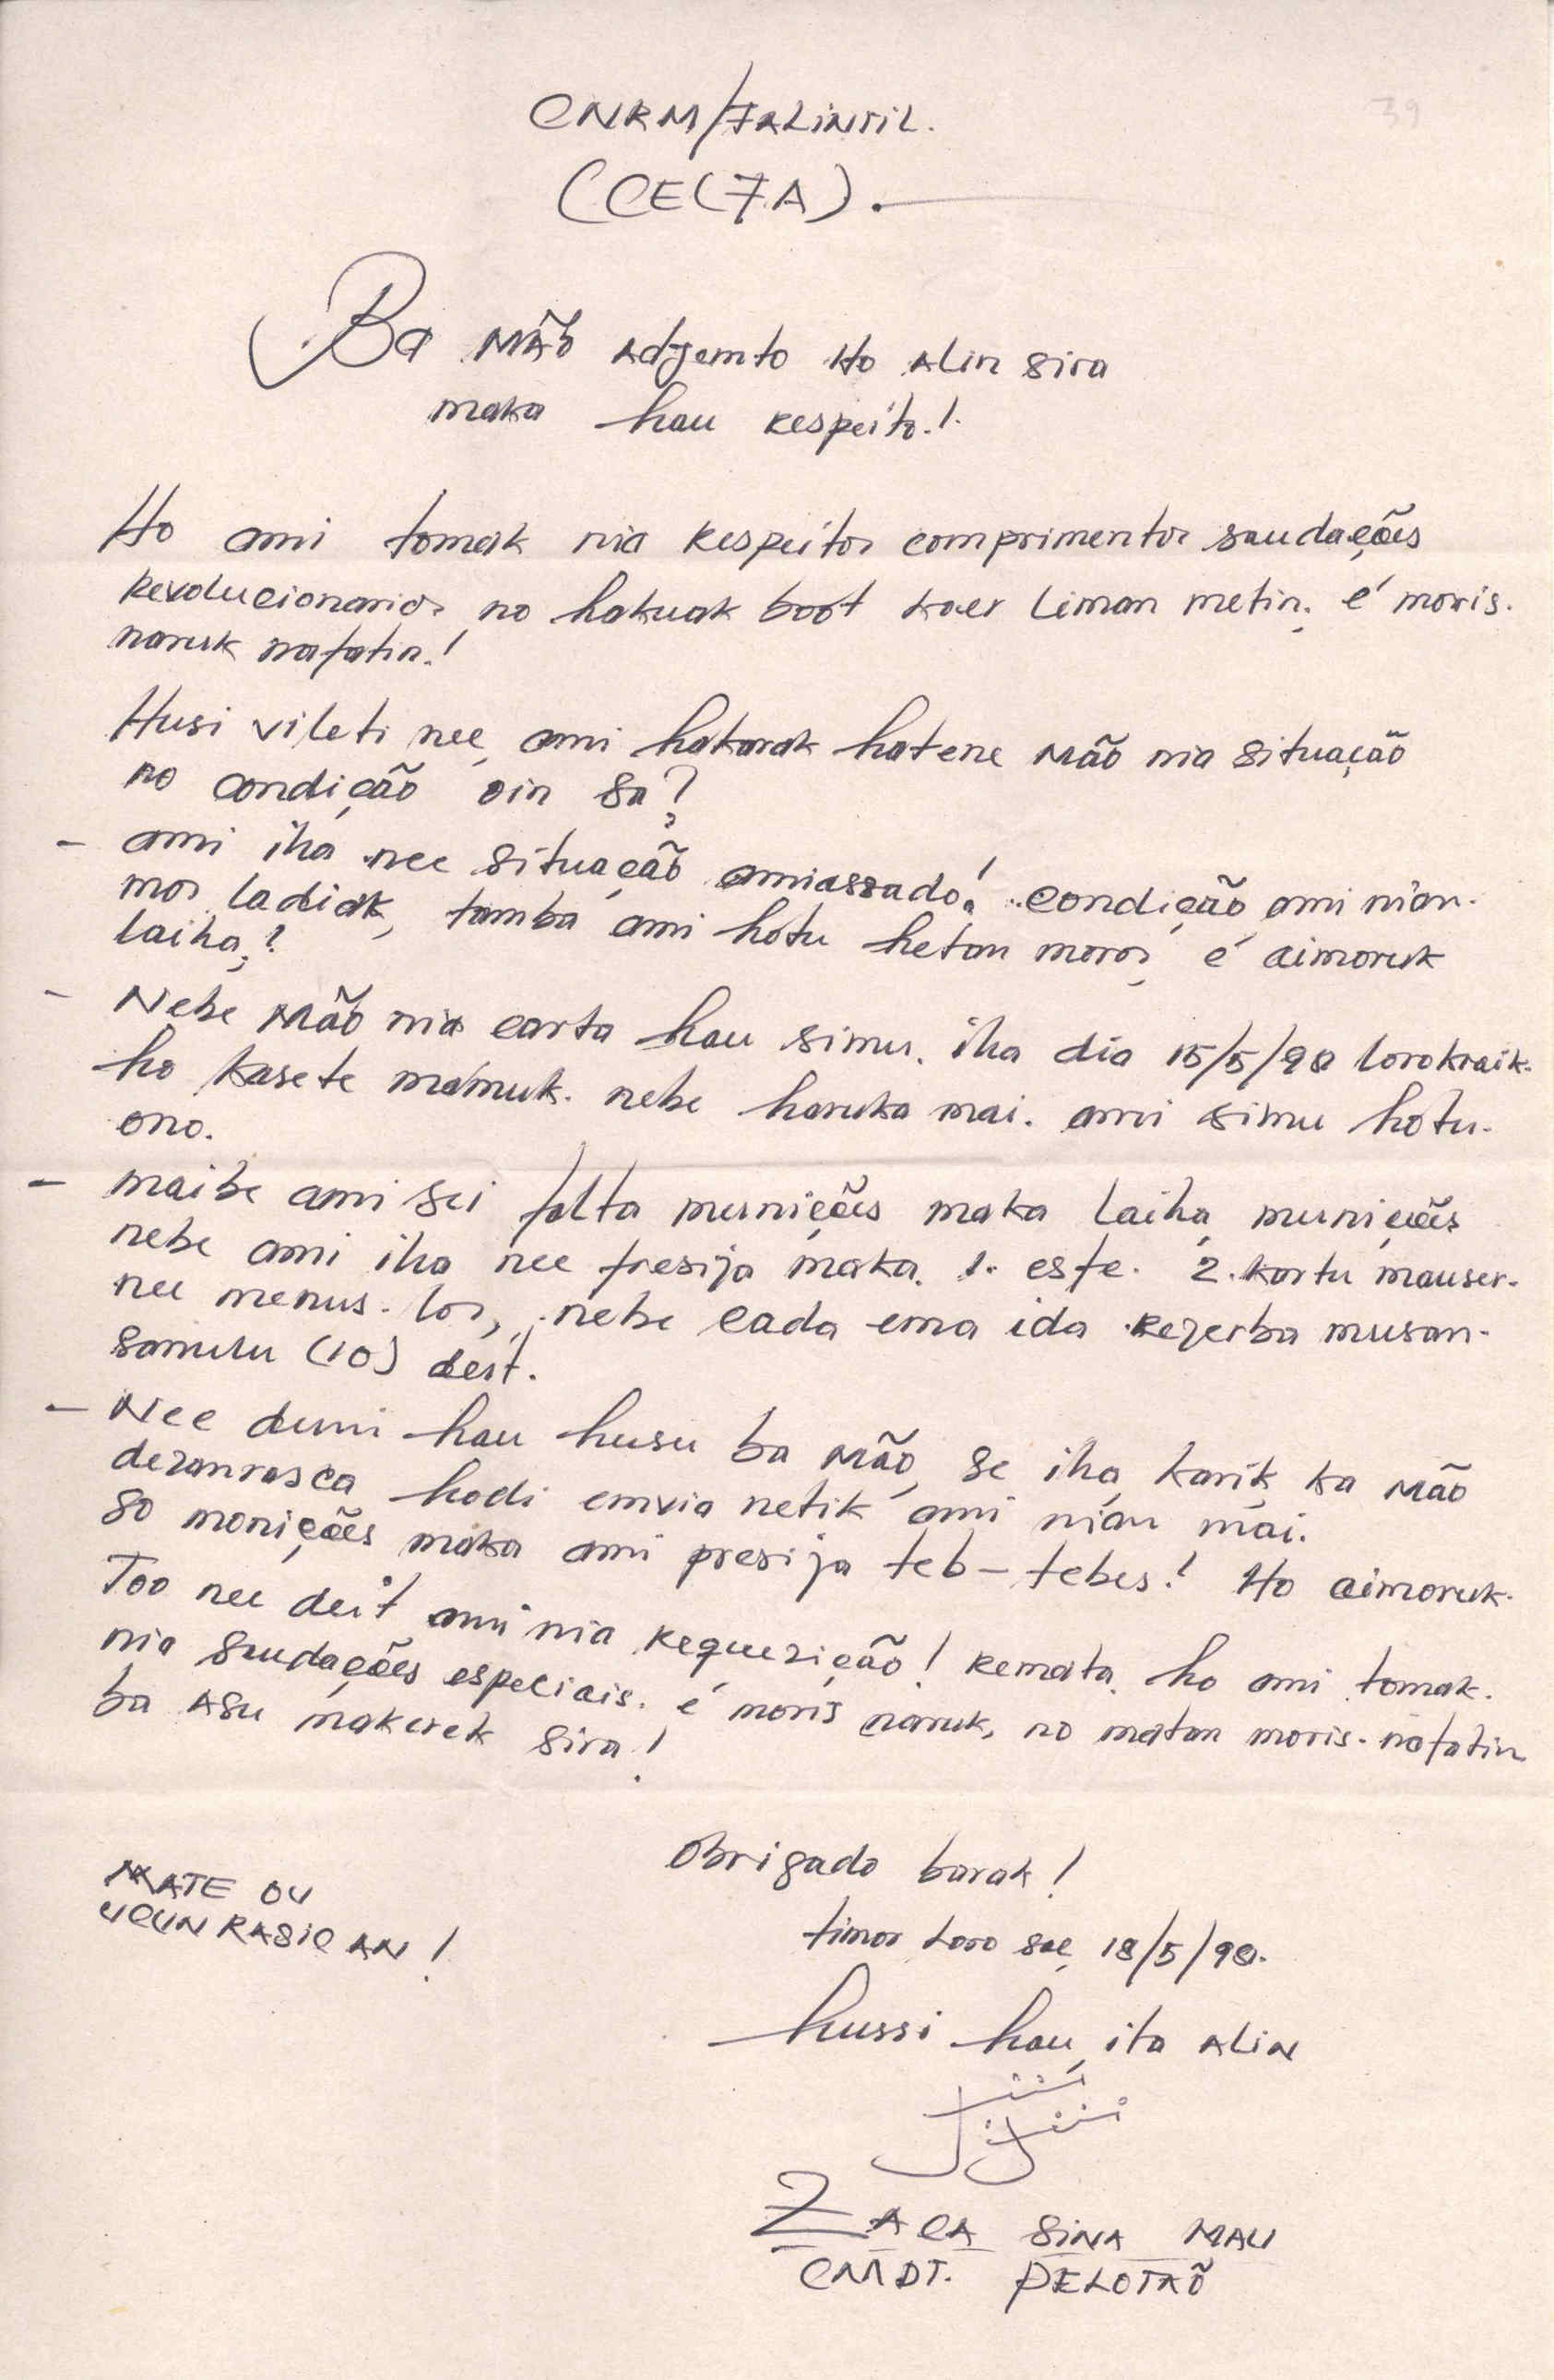 39
CNRM/FALINTIL.
(CE(FA).
Ba Mãō Adjemto Ho Alin Sira
maka hau Respeito.!.
Ho ami tomak nia Respeitos comprimentos saudações
Revolucionarios no hakuak boot kaer Liman metin. é moris.
naruk nafatin.!
Husi vileti nee ami hakarak hatene Mãō nia situação
no condição oin sa?
- ami iha nee situação amiassado! condição ami nian.
mos ladiak, tamba ami hotu hetan moras é aimoruk
laiha.!
- Nebe Mãō nia carta hau simu. iha dia 15/5/98 lorokraik.
ho kasete mamuk. nebe haruka mai. ami simu hotu.
ono.
- maibe ami sei falta munições maka laiha munições
nebe ami iha nee presija maka. 1. esfe. 2. kartu mauser.
nee menus. los, nebe cada ema ida rezerba musan.
Sanulu (10) deit.
- Nee duni hau husu ba Mãō se iha karik ka Mãō
dezanrasca hodi envia netik ami nian mai.
So monições maka ami presija teb-tebes! Ho aimoruk.
Too nee deit ami nia Requezição! Remata. ho ami tomak.
nia Saudações especiais. é moris naruk, no matan moris. nafatin
ba Asu makerek sira!
Obrigado barak!
MATE OU
UCUN RASIC AN!
timor Loro sae 18/5/98.
hussi hau ita Alin
ZACA SINA MAU
CMDT. PELOTÃO